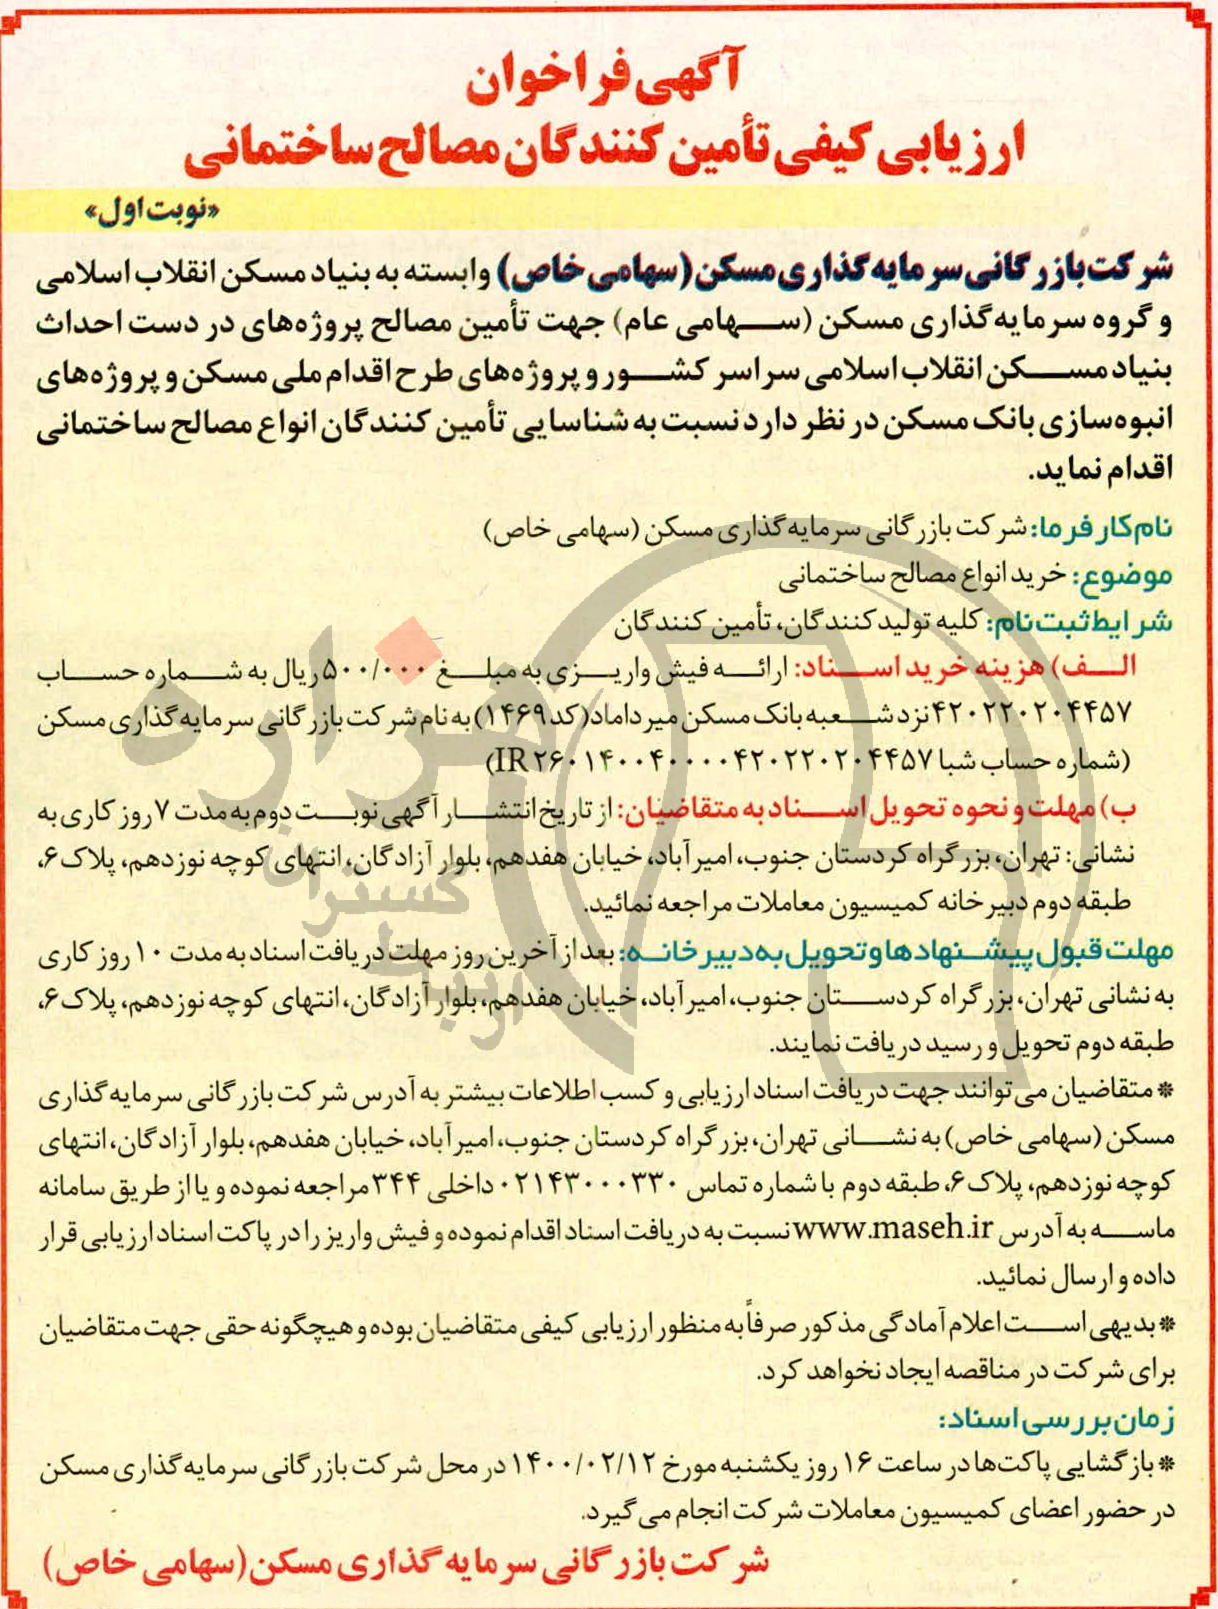 آگهی فراخوان
ارزیابی کیفی تأمین کنندگان مصالح ساختمانی
«نوبت اول»
شرکت بازرگانی سرمایه گذاری مسکن (سهامی خاص) وابسته به بنیاد مسکن انقلاب اسلامی
و گروه سرمایه گذاری مسکن (سهامی عام) جهت تأمین مصالح پروژه‌های در دست احداث
بنیاد مسکن انقلاب اسلامی سراسر کشور و پروژه‌های طرح اقدام ملی مسکن و پروژه‌های
انبوه سازی بانک مسکن در نظر دارد نسبت به شناسایی تأمین کنندگان انواع مصالح ساختمانی
اقدام نماید.
نام کارفرما: شرکت بازرگانی سرمایه گذاری مسکن (سهامی خاص)
موضوع: خرید انواع مصالح ساختمانی
شرایط ثبت نام: کلیه تولیدکنندگان، تأمین کنندگان
الف) هزینه خرید اسناد: ارائه فیش واریزی به مبلغ ۵۰۰/۰۰۰ ریال به شماره حساب
۴۲۰۲۲۰۲۰۴۴۵۷ نزد شعبه بانک مسکن میرداماد(کد ۱۴۶۹) به نام شرکت بازرگانی سرمایه گذاری مسکن
(شماره حساب شبا IR۲۶۰۱۴۰۰۴۰۰۰۰۴۲۰۲۲۰۲۰۴۴۵۷)
ب) مهلت و نحوه تحویل اسناد به متقاضیان: از تاریخ انتشار آگهی نوبت دوم به مدت ۷ روز کاری به
نشانی: تهران، بزرگراه کردستان جنوب، امیرآباد، خیابان هفدهم، بلوار آزادگان، انتهای کوچه نوزدهم، پلاک ۶،
طبقه دوم دبیرخانه کمیسیون معاملات مراجعه نمائید.
مهلت قبول پیشنهادها و تحویل به دبیرخانه: بعد از آخرین روز مهلت دریافت اسناد به مدت ۱۰ روز کاری
به نشانی تهران، بزرگراه کردستان جنوب، امیرآباد، خیابان هفدهم، بلوار آزادگان، انتهای کوچه نوزدهم، پلاک ۶،
طبقه دوم تحویل و رسید دریافت نمایند.
* متقاضیان می‌توانند جهت دریافت اسناد ارزیابی و کسب اطلاعات بیشتر به آدرس شرکت بازرگانی سرمایه گذاری
مسکن (سهامی خاص) به نشانی تهران، بزرگراه کردستان جنوب، امیرآباد، خیابان هفدهم، بلوار آزادگان، انتهای
کوچه نوزدهم، پلاک ۶، طبقه دوم با شماره تماس ۰۲۱۴۳۰۰۰۳۳۰ داخلی ۳۴۴ مراجعه نموده و یا از طریق سامانه
ماسه به آدرس www.maseh.ir نسبت به دریافت اسناد اقدام نموده و فیش واریز را در پاکت اسناد ارزیابی قرار
داده و ارسال نمائید.
* بدیهی است اعلام آمادگی مذکور صرفاً به منظور ارزیابی کیفی متقاضیان بوده و هیچگونه حقی جهت متقاضیان
برای شرکت در مناقصه ایجاد نخواهد کرد.
زمان بررسی اسناد:
* بازگشایی پاکت‌ها در ساعت ۱۶ روز یکشنبه مورخ ۱۴۰۰/۰۲/۱۲ در محل شرکت بازرگانی سرمایه گذاری مسکن
در حضور اعضای کمیسیون معاملات شرکت انجام می گیرد.
شرکت بازرگانی سرمایه گذاری مسکن (سهامی خاص)